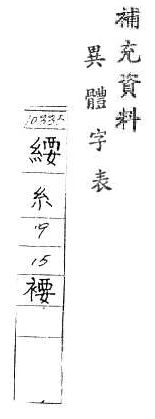 補充資料
異體字表
10335
緩
糸
9
15
𧛾